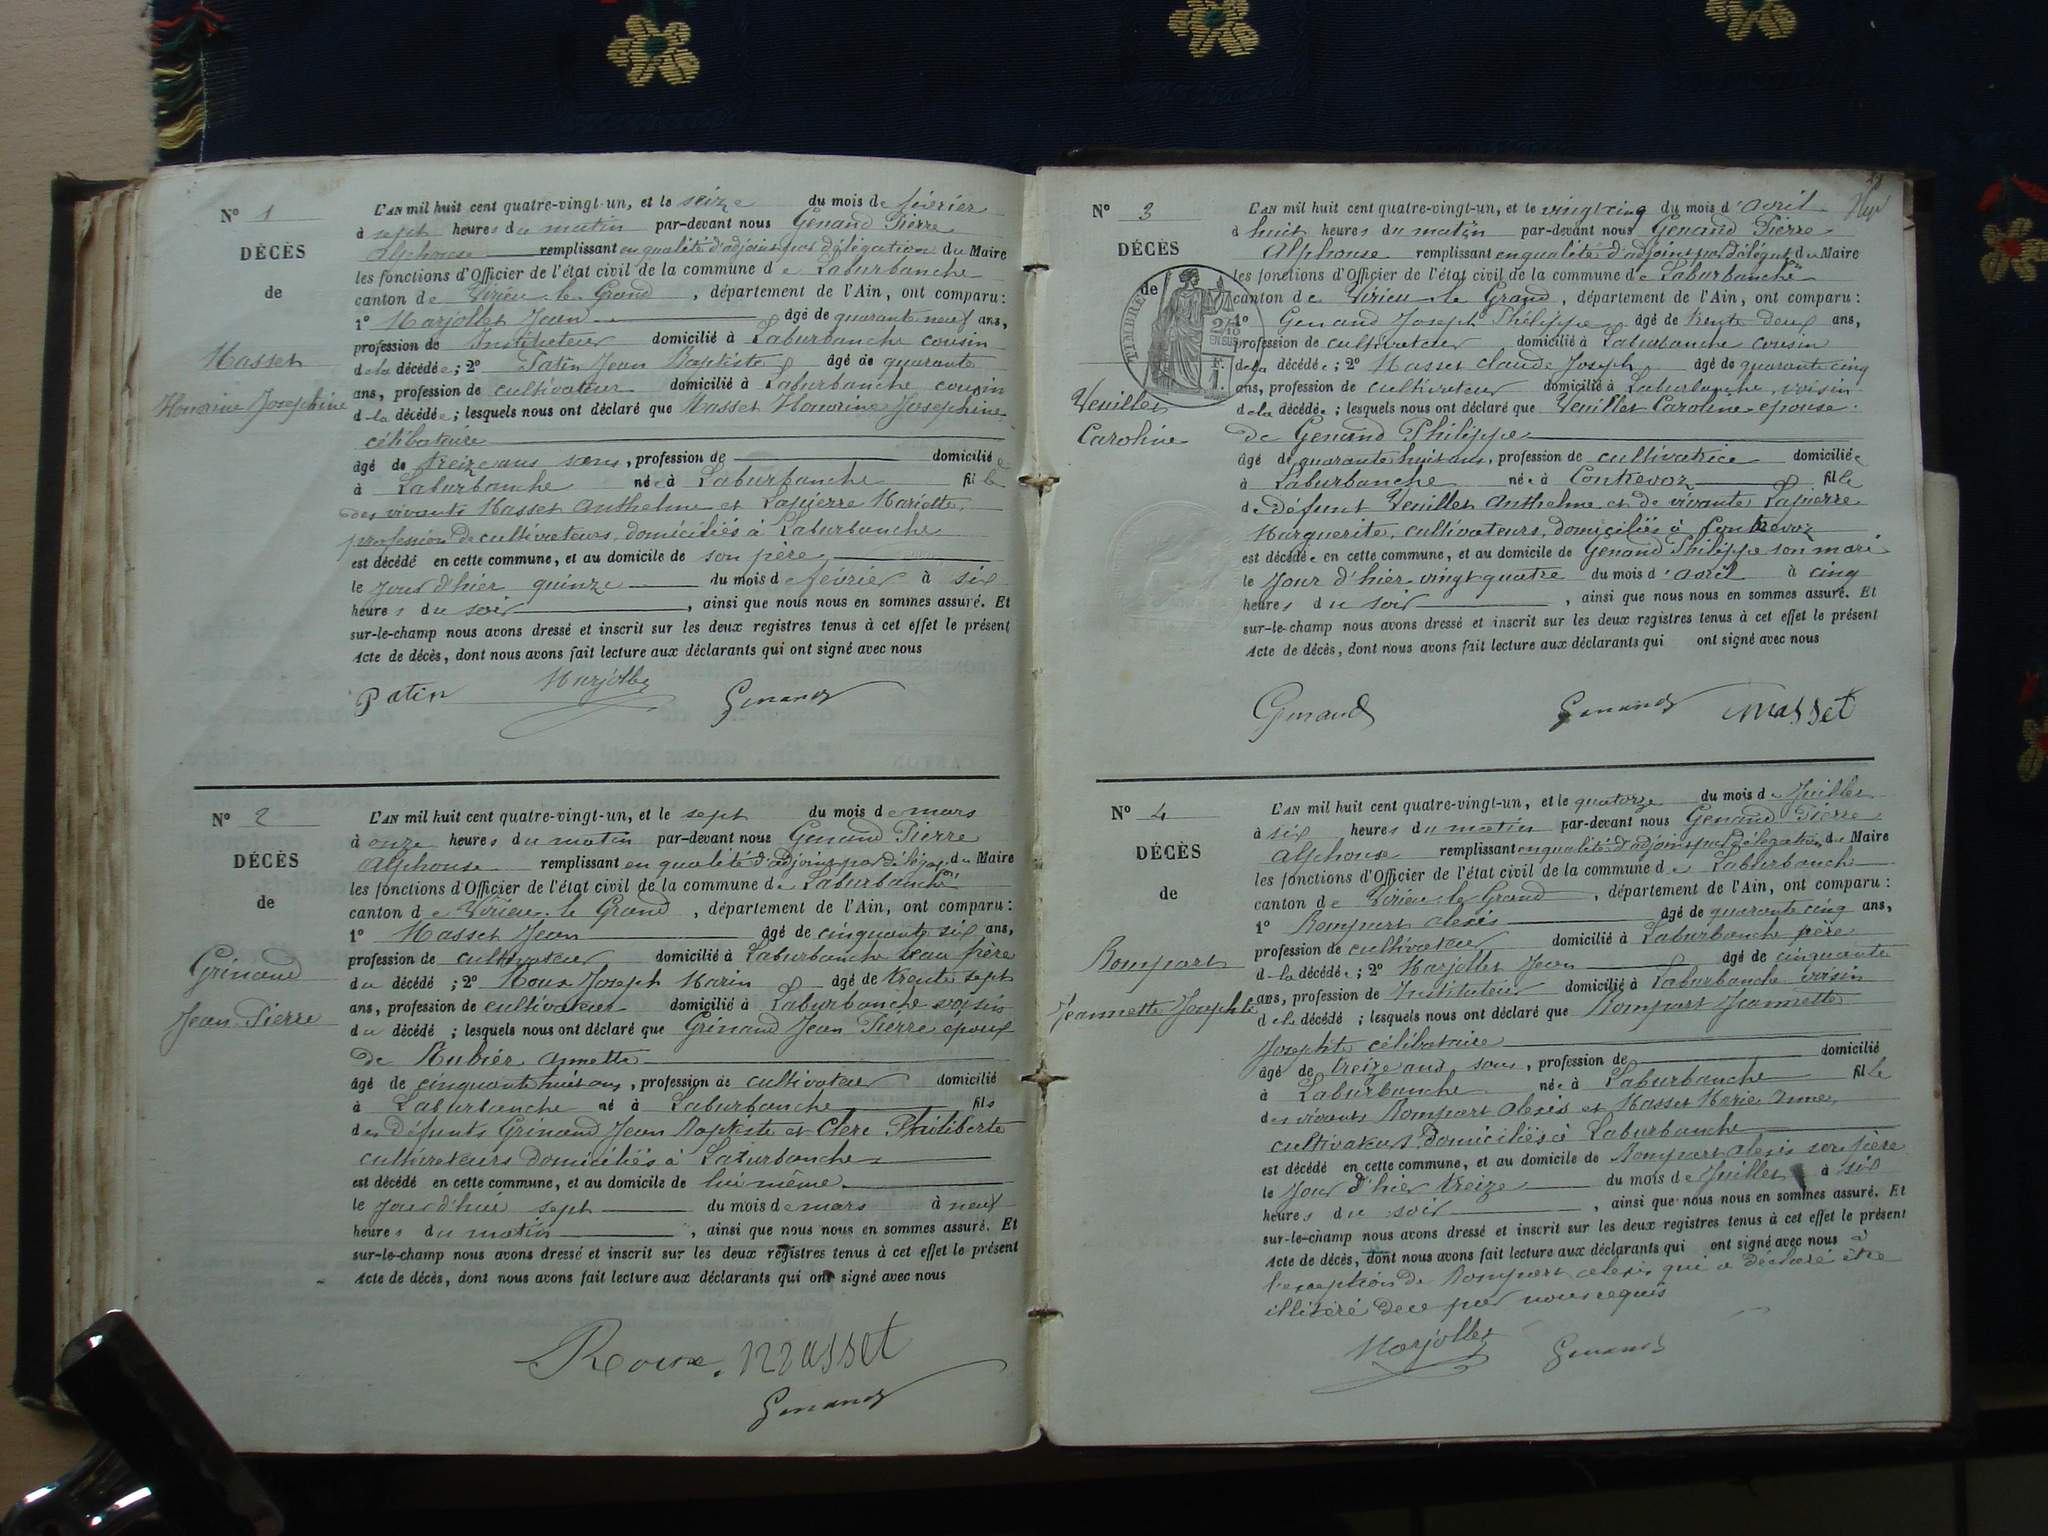 N° 1
DÉCÈS
de
Masset
Honorine Josephine
L'AN mil huit cent quatre-vingt-un, et le seize du mois de février
à sept heures du matin par-devant nous Genand Pierre
Alphonse remplissant en qualité d'adjoint par délégation du Maire
les fonctions d'Officier de l'état civil de la commune de Laburbanche
canton de Virieu-le-Grand, département de l'Ain, ont comparu :
1° Marjollet Jean âgé de quarante neuf ans,
profession de Instituteur domicilié à Laburbanche cousin
de la décédée ; 2° Patin Jean Baptiste âgé de quarante
ans, profession de cultivateur domicilié à Laburbanche cousin
d la décédée ; lesquels nous ont déclaré que Masset Honorine Josephine
célibataire
âgé de treize ans sans, profession de domiciliée
à Laburbanche née à Laburbanche fille
des vivants Masset Anthelme et Lapierre Mariette,
profession de cultivateurs, domiciliés à Laburbanche
est décédé en cette commune, et au domicile de son père
le jour d'hier quinze du mois de février à six
heures du soir, ainsi que nous nous en sommes assuré. Et
sur-le-champ nous avons dressé et inscrit sur les deux registres tenus à cet effet le présent
Acte de décès, dont nous avons fait lecture aux déclarants qui ont signé avec nous
Patin Marjollet Genand
N° 2
DÉCÈS
de
Grinand
Jean Pierre
L'AN mil huit cent quatre-vingt-un, et le sept du mois de mars
à onze heures du matin par-devant nous Genand Pierre
Alphonse remplissant en qualité d'adjoint par délégation du Maire
les fonctions d'Officier de l'état civil de la commune de Laburbanche
canton de Virieu-le-Grand, département de l'Ain, ont comparu :
1° Masset Jean âgé de cinquante six ans,
profession de cultivateur domicilié à Laburbanche beau frère
du décédé ; 2° Roux Joseph Marin âgé de trente sept
ans, profession de cultivateur domicilié à Laburbanche voisin
du décédé ; lesquels nous ont déclaré que Grinand Jean Pierre époux
de Rubier Annette
âgé de cinquante huit ans, profession de cultivateur domicilié
à Laburbanche né à Laburbanche fils
des défunts Grinand Jean Baptiste et Clerc Philiberte
cultivateurs domiciliés à Laburbanche
est décédé en cette commune, et au domicile de lui même
le jour d'hui sept du mois de mars à neuf
heures du matin, ainsi que nous nous en sommes assuré. Et
sur-le-champ nous avons dressé et inscrit sur les deux registres tenus à cet effet le présent
Acte de décès, dont nous avons fait lecture aux déclarants qui ont signé avec nous
Roux. masset
Genand
N° 3
DÉCÈS
de
TIMBRE
2/10
EN SUS
Veuillet
Caroline
L'AN mil huit cent quatre-vingt-un, et le vingt cinq du mois d'avril
à huit heures du matin par-devant nous Genand Pierre
Alphonse remplissant en qualité d'adjoint par délégat.on du Maire
les fonctions d'Officier de l'état civil de la commune de Laburbanche
canton de Virieu-le-Grand, département de l'Ain, ont comparu :
1° Genand Joseph Philippe âgé de trente deux ans,
profession de cultivateur domicilié à Laburbanche cousin
de la décédée ; 2° Masset Claude Joseph âgé de quarante cinq
ans, profession de cultivateur domicilié à Laburbanche, voisin
de la décédée ; lesquels nous ont déclaré que Veuillet Caroline épouse
de Genand Philippe
âgé de quarante huit ans, profession de cultivatrice domiciliée
à Laburbanche née à Contrevoz fille
de défunt Veuillet Anthelme et de vivante Lapierre
Marguerite, cultivateurs, domiciliés à Contrevoz
est décédée en cette commune, et au domicile de Genand Philippe son mari
le jour d'hier vingt quatre du mois d'avril à cinq
heures du soir, ainsi que nous nous en sommes assuré. Et
sur-le-champ nous avons dressé et inscrit sur les deux registres tenus à cet effet le présent
Acte de décès, dont nous avons fait lecture aux déclarants qui ont signé avec nous
Genand Genand masset
N° 4
DÉCÈS
de
Rompart
Jeannette Josephte
L'AN mil huit cent quatre-vingt-un, et le quatorze du mois de Juillet
à six heures du matin par-devant nous Genand Pierre
Alphonse remplissant en qualité d'adjoint par délégation du Maire
les fonctions d'Officier de l'état civil de la commune de Laburbanche
canton de Virieu-le-Grand, département de l'Ain, ont comparu :
1° Rompart Alexis âgé de quarante cinq ans,
profession de cultivateur domicilié à Laburbanche père
d la décédée ; 2° Marjollet Jean âgé de cinquante
ans, profession de Instituteur domicilié à Laburbanche voisin
de la décédé ; lesquels nous ont déclaré que Rompart Jeannette
Josephte célibataire
âgé de treize ans sans, profession de domicilié
à Laburbanche née à Laburbanche fille
des vivants Rompart Alexis et Masset Marie Anne,
cultivateurs domiciliés à Laburbanche
est décédé en cette commune, et au domicile de Rompart Alexis son père
le jour d'hier treize du mois de Juillet à six
heures du soir, ainsi que nous nous en sommes assuré. Et
sur-le-champ nous avons dressé et inscrit sur les deux registres tenus à cet effet le présent
Acte de décès, dont nous avons fait lecture aux déclarants qui ont signé avec nous à
l'exception de Rompart Alexis qui a déclaré être
illitéré de ce par nous requis
Marjollet Genand